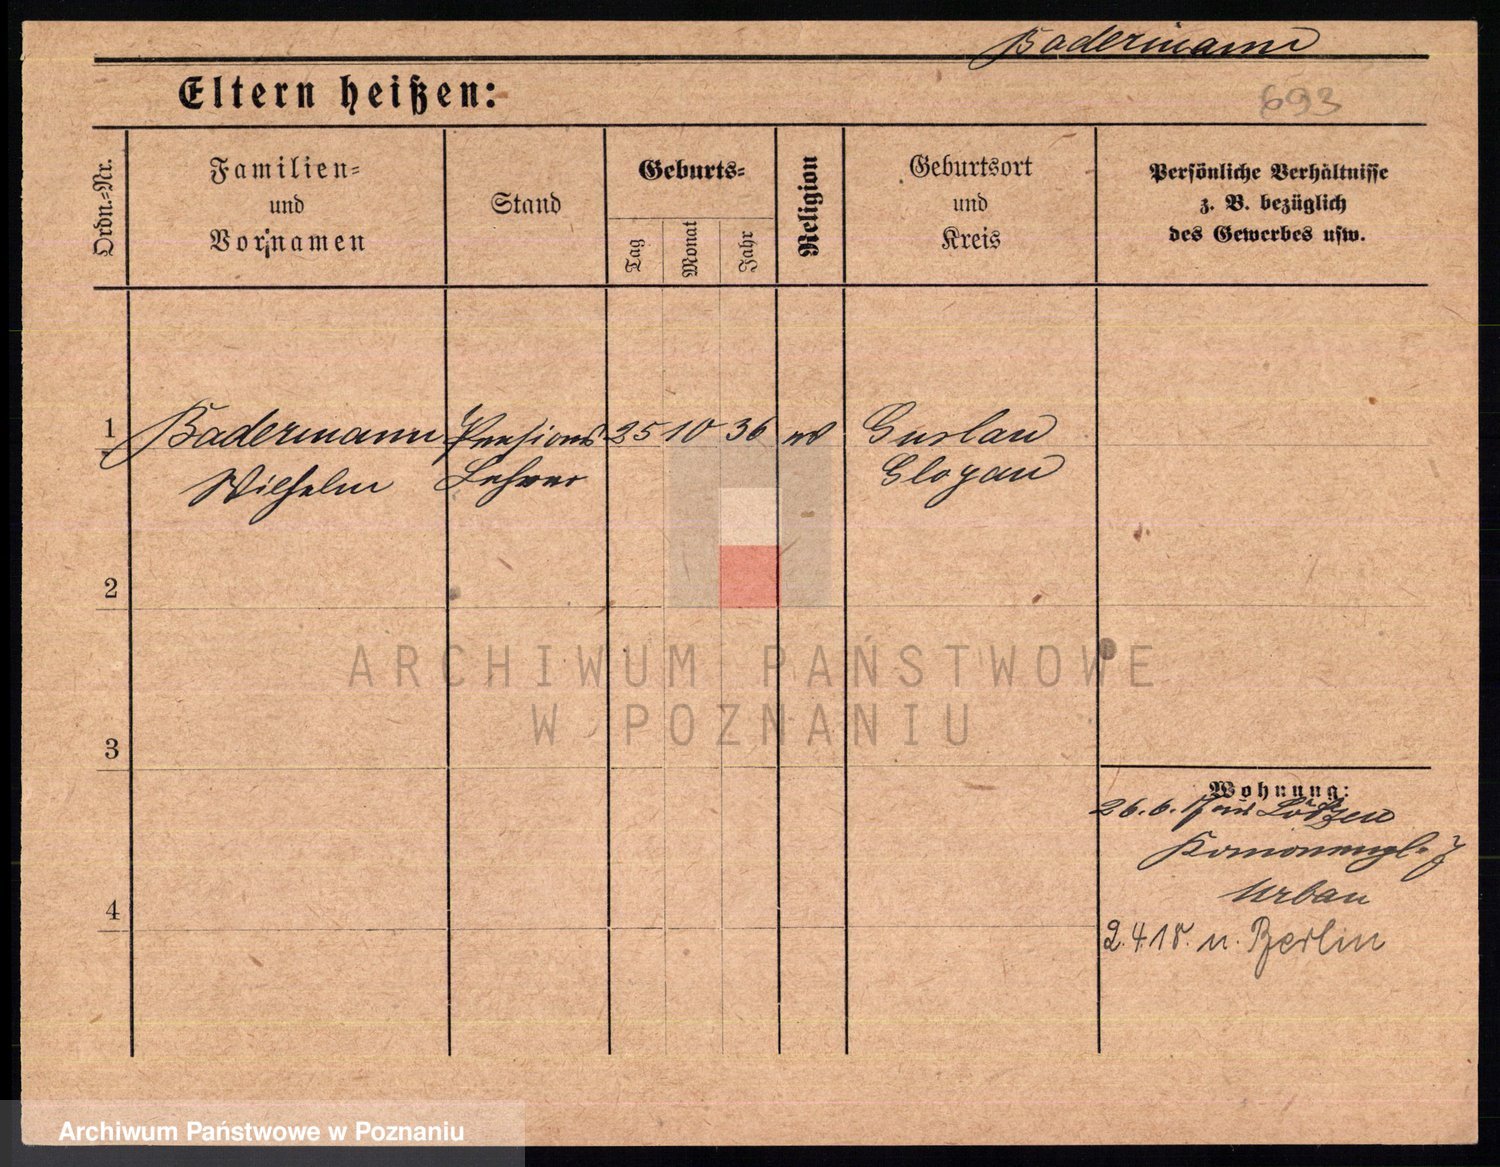 Badermann
Eltern heißen:
693
Ordn.=Nr.
Familien=
und
Vornamen
Stand
Geburts=
Tag
Monat
Jahr
Religion
Geburtsort
und
Kreis
Persönliche Verhältnisse
z. B. bezüglich
des Gewerbes usw.
1
Badermann
Wilhelm
Lehrer
25 10 36
ev
Guslau
Glogau
2
3
4
Wohnung:
26.6. Lötzen
Urban
2.4.18. n. Berlin
ARCHIWUM PAŃSTWOWE
W POZNANIU
Archiwum Państwowe w Poznaniu